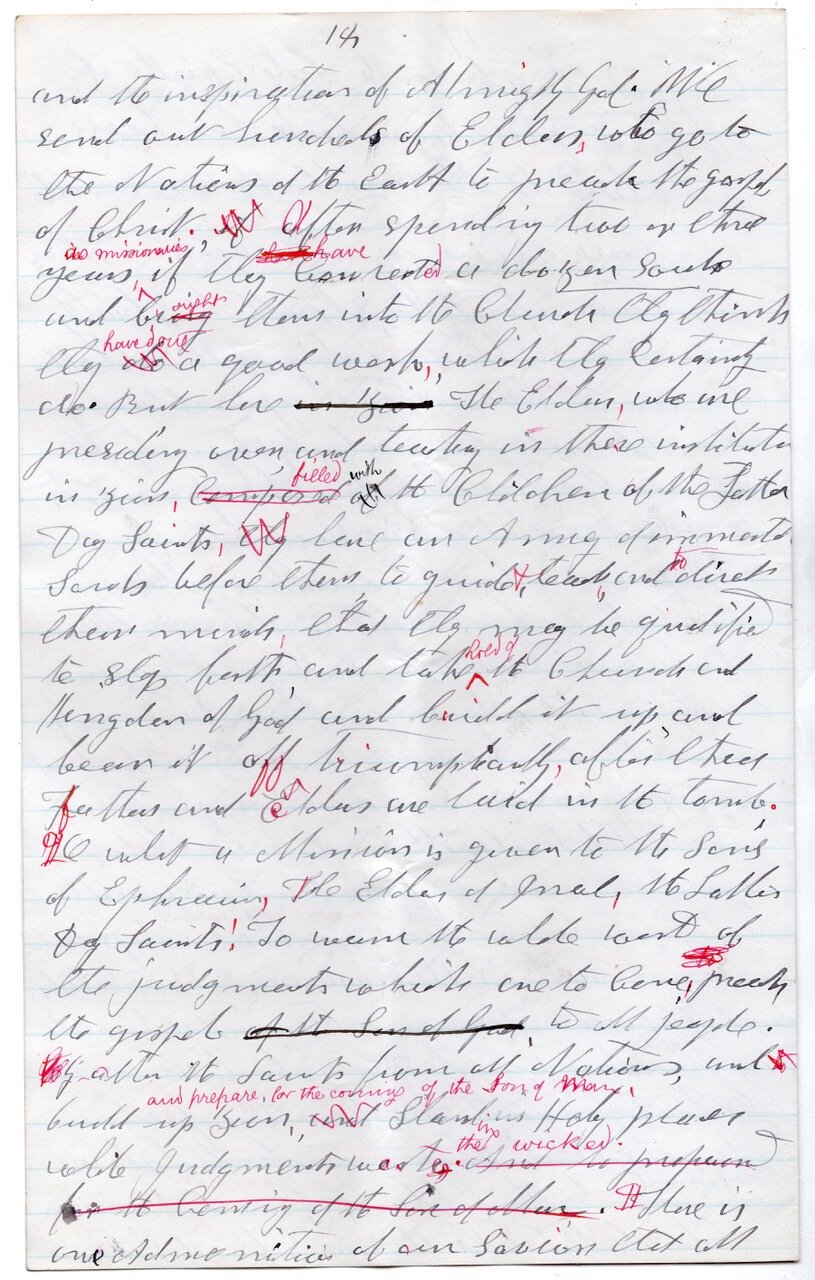 14
and the inspiration of Almighty God. We
send out hundreds of Elders, who go to
the Nations of the Earth to preach the gospel
of Christ. After spending two or three
as missionaries have
years, if they converted a dozen souls
ought
and bring them into the Church they think
have done
they do a good work, which they certainly
do. But here in Zion The Elders, who are
presiding over, and teaching in these institutions
filled with
in Zion, composed of the Children of the Latter
Day Saints, they have an Army of immortal
to
Souls before them, to guide, teach, and direct
their minds, that they may be qualified
hold of
to step forth and take the Church and
Kingdom of God and build it up and
bear it off triumphantly, after their
Fathers and Elders are laid in the tomb.
O what a Mission is given to the Sons
of Ephraim, The Elders of Israel, the Latter
Day Saints! To warn the whole world of
the judgments which are to come, preach
the gospel of the Son of God to all people.
gather the Saints from all Nations, and
and prepare, for the coming of the Son of Man,
build up Zion, and Stand in Holy places
the wicked.
while Judgments waste And to prepare
for the Coming of the Son of Man. There is
one Admonition of our Savior that all